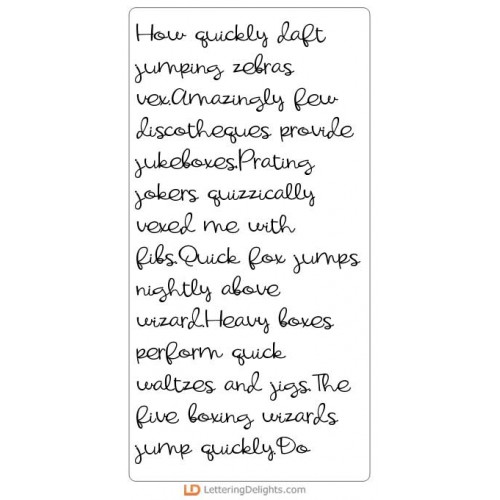 How quickly daft
jumping zebras
vex.Amazingly few
discotheques provide
jukeboxes.Prating
jokers quizzically
vexed me with
fibs.Quick fox jumps
nightly above
wizard.Heavy boxes
perform quick
waltzes and jigs.The
five boxing wizards
jump quickly.Do
LD LetteringDelights.com